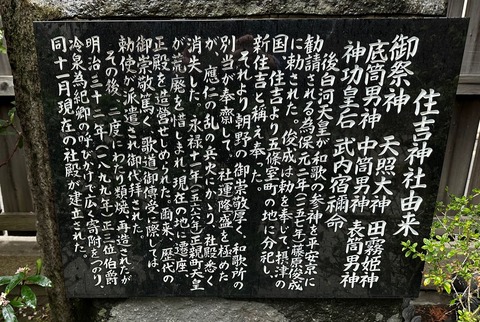 住吉神社由来
御祭神 天照大神 田霧姫神
底筒男神 中筒男神 表筒男神
神功皇后 武内宿禰命
後白河天皇が和歌の参神を平安京に
勧請される為保元二年(一一五七年)藤原俊成
に勅された。俊成は勅を奉じて、摂津の
国・住吉より五條室町の地に分祀し、
新住吉と称え奉った。
それより朝野の御崇敬厚く、和歌所の
別当が奉斎して、社運隆盛を極めた
が、應仁の乱の兵火にかかり、社殿悉く
消失した。永禄十一年(一五六八年)正親町天皇
が荒廃を惜しまれ、現在の地に遷座
正殿を造営せしめられた。爾来、歴代の
御崇敬篤く、歌道御傳受に際しては、
勅使が派遣され御代拝された。
その後、二度にわたり類焼、再造されたが
明治三十二年(一八九九年)正三位伯爵
冷泉為紀卿の呼びかけで広く寄附をつのり、
同十一月現在の社殿が建立された。